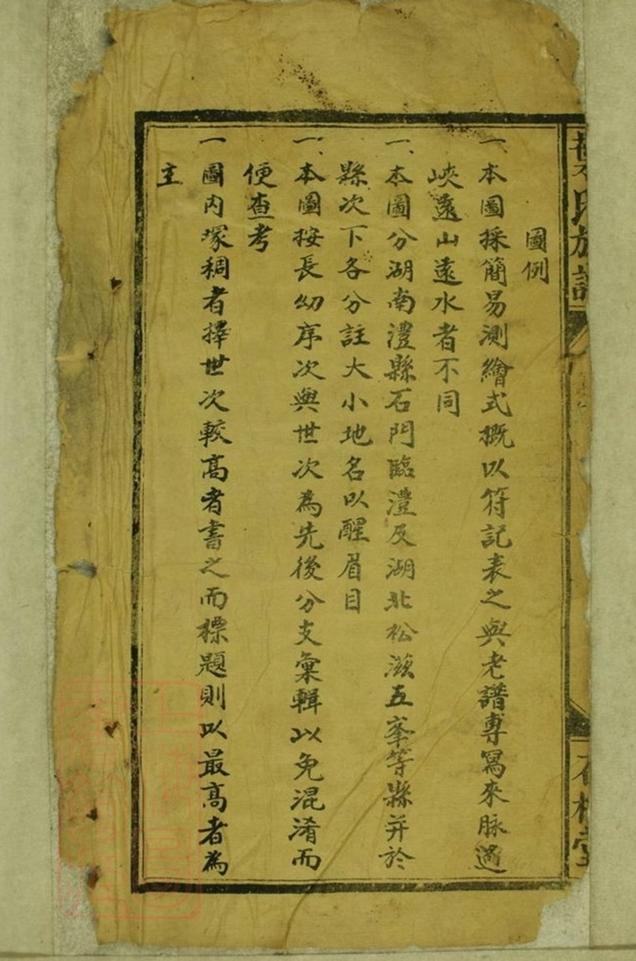 圖例
一本圖採簡易測繪式概以符記表之與老譜專寫來脉過
峽遠山遠水者不同
一本圖分湖南澧縣石門臨澧及湖北松滋五峯等縣并於
縣次下各分註大小地名以醒眉目
一本圖按長幼序次與世次為先後分支彙輯以免混淆而
便查考
一圖內塚稠者擇世次較高者書之而標題則以最高者為
主
氏族譜